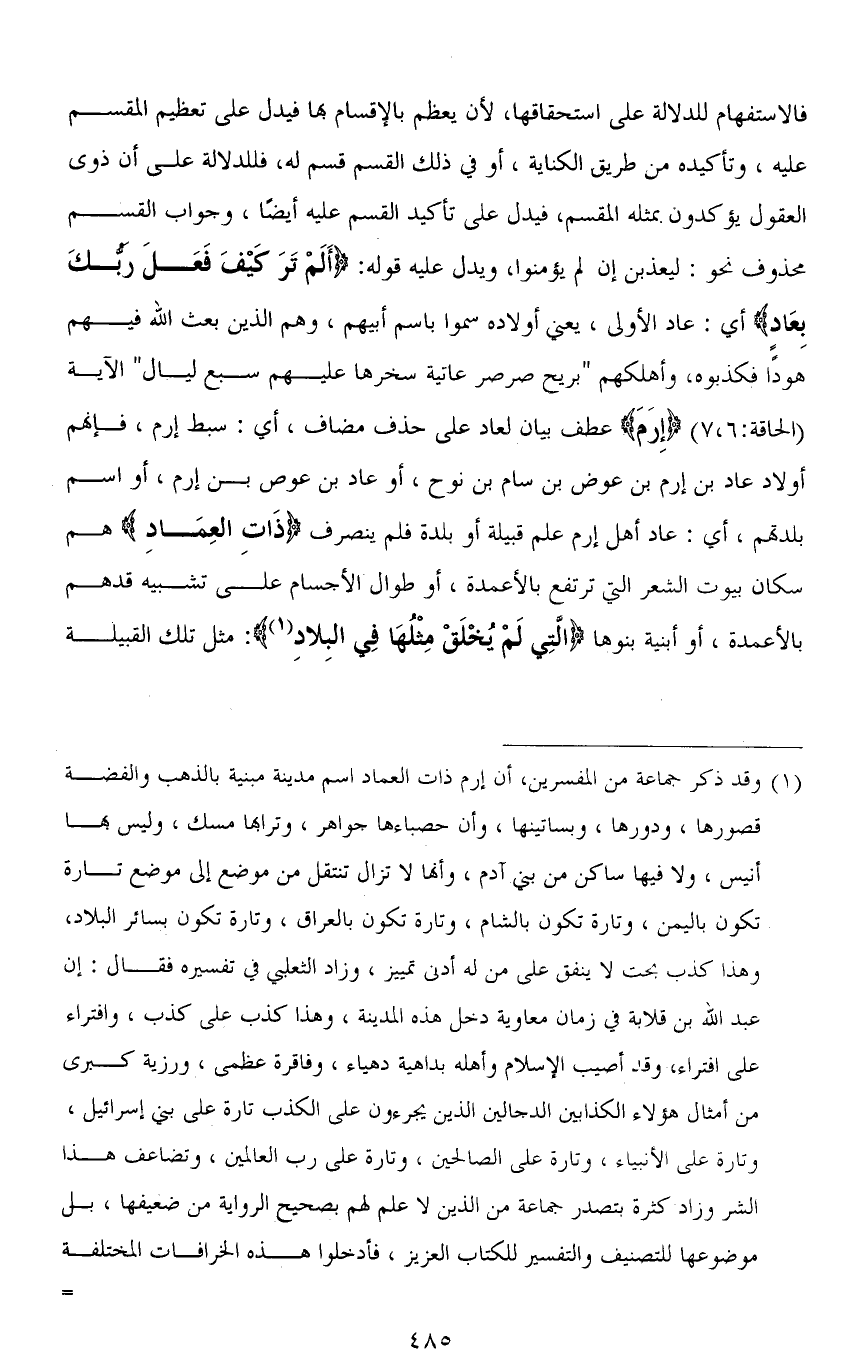 فالاستفهام للدلالة على استحقاقها، لأن يعظم بالإقسام بها فيدل على تعظيم المقسم
عليه ، وتأكيده من طريق الكناية ، أو في ذلك القسم قسم له، فللدلالة على أن ذوى
العقول يؤكدون بمثله المقسم، فيدل على تأكيد القسم عليه أيضًا ، وجواب القسم
محذوف نحو : ليعذبن إن لم يؤمنوا، ويدل عليه قوله: ﴿أَلَمْ تَرَ كَيْفَ فَعَلَ رَبُّكَ
بِعَادٍ﴾ أي : عاد الأولى ، يعني أولاده سموا باسم أبيهم ، وهم الذين بعث الله فيهم
هودًا فكذبوه، وأهلكهم "بريح صرصر عاتية سخرها عليهم سبع ليال" الآية
(الحاقة:٧،٦) ﴿إِرَمَ﴾ عطف بيان لعاد على حذف مضاف ، أي : سبط إرم ، فإنهم
أولاد عاد بن إرم بن عوض بن سام بن نوح ، أو عاد بن عوص بن إرم ، أو اسم
بلدتهم ، أي : عاد أهل إرم علم قبيلة أو بلدة فلم ينصرف ﴿ذَاتِ العِمَادِ﴾ هم
سكان بيوت الشعر التي ترتفع بالأعمدة ، أو طوال الأجسام على تشبيه قدهم
بالأعمدة ، أو أبنية بنوها ﴿الَّتِي لَمْ يُخْلَقْ مِثْلُهَا فِي البِلادِ(١)﴾: مثل تلك القبيلة
(١) وقد ذكر جماعة من المفسرين، أن إرم ذات العماد اسم مدينة مبنية بالذهب والفضة
قصورها ، ودورها ، وبساتينها ، وأن حصباءها جواهر ، وترابها مسك ، وليس بها
أنيس ، ولا فيها ساكن من بني آدم ، وأنها لا تزال تنتقل من موضع إلى موضع تارة
تكون باليمن ، وتارة تكون بالشام ، وتارة تكون بالعراق ، وتارة تكون بسائر البلاد،
وهذا كذب بحت لا ينفق على من له أدنى تمييز ، وزاد الثعلبي في تفسيره فقال : إن
عبد الله بن قلابة في زمان معاوية دخل هذه المدينة ، وهذا كذب على كذب ، وافتراء
على افتراء، وقد أصيب الإسلام وأهله بداهية دهياء ، وفاقرة عظمى ، ورزية كبرى
من أمثال هؤلاء الكذابين الدجالين الذين يجرءون على الكذب تارة على بني إسرائيل ،
وتارة على الأنبياء ، وتارة على الصالحين ، وتارة على رب العالمين ، وتضاعف هذا
الشر وزاد كثرة بتصدر جماعة من الذين لا علم لهم بصحيح الرواية من ضعيفها ، بل
موضوعها للتصنيف والتفسير للكتاب العزيز ، فأدخلوا هذه الخرافات المختلفة
=
٤٨٥